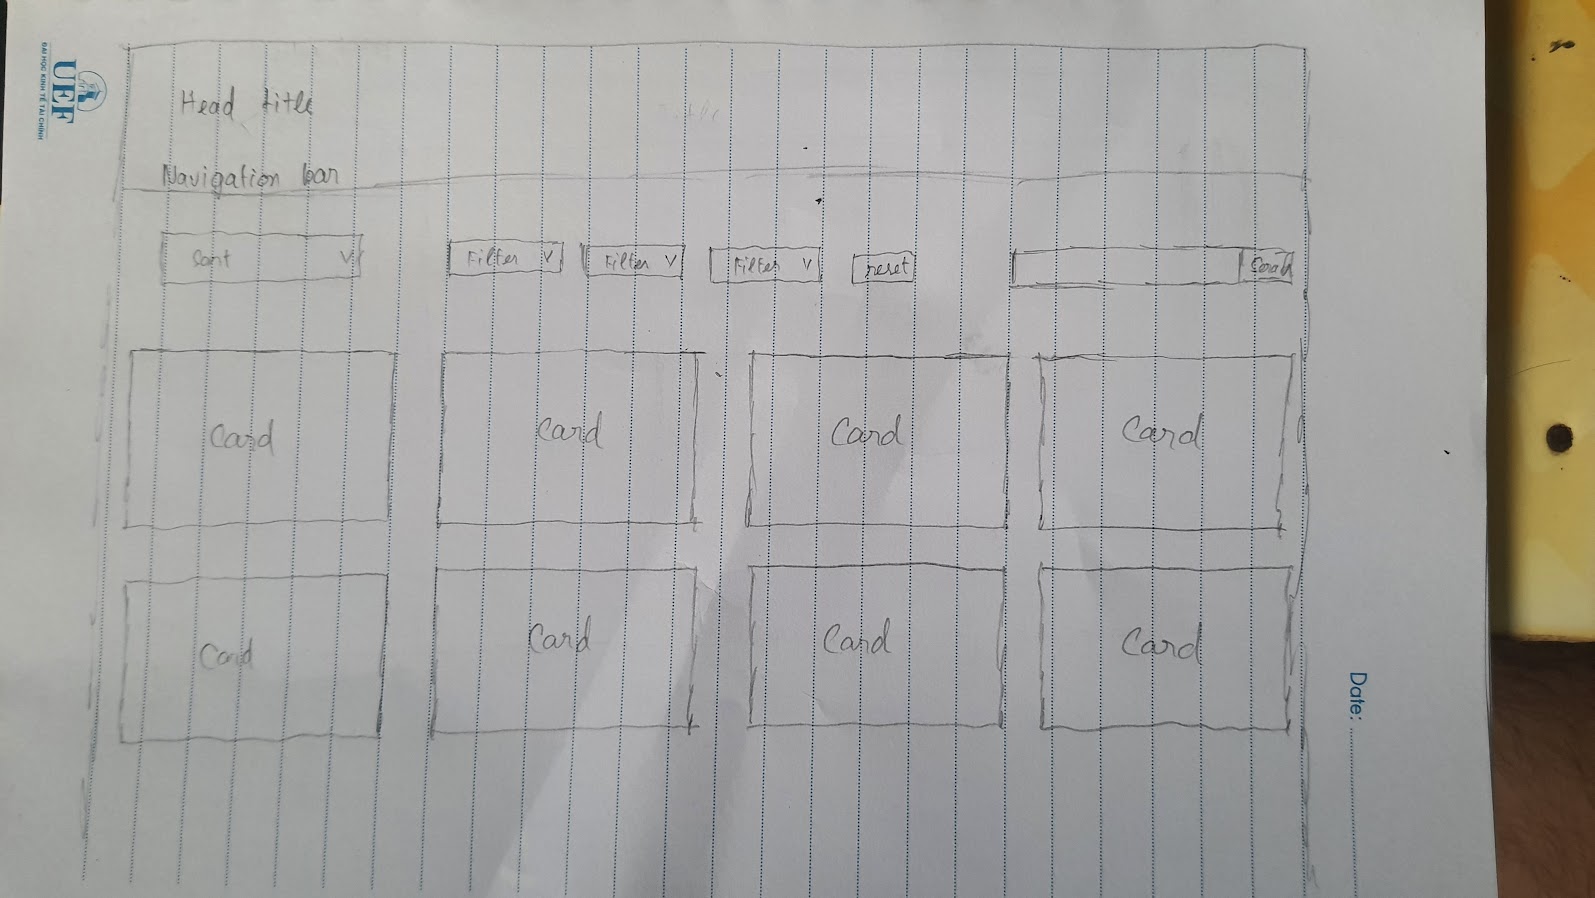 UEF
ĐẠI HỌC KINH TẾ TÀI CHÍNH
Head title
Navigation bar
Sort V Filter V Filter V Filter V reset
Card Card Card Card
Card Card Card Card
Date: